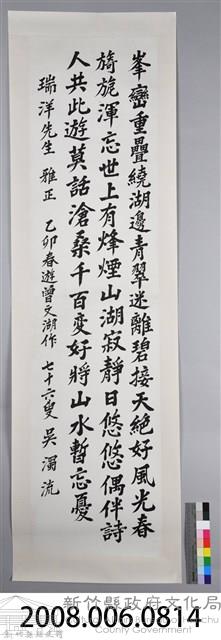 峯巒重疊繞湖邊青翠迷離碧接天絕好風光春
旖旎渾忘世上有烽煙山湖寂靜日悠悠偶伴詩
人共此遊莫話滄桑千百变好將山水暫忘憂
瑞洋先生 雅正 乙卯春遊曾文湖作 七十六叟 吳濁流
新竹縣政府文化局
County Government
2008.006.0814